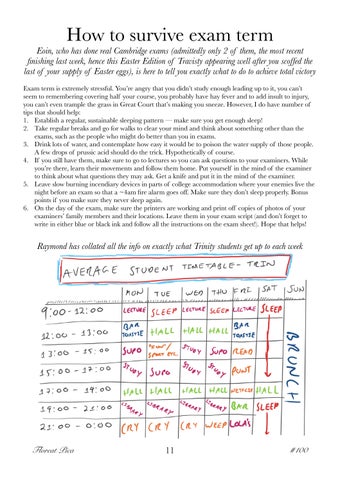 How to survive exam term
Eoin, who has done real Cambridge exams (admittedly only 2 of them, the most recent
finishing last week, hence this Easter Edition of Travisty appearing well after you scoffed the
last of your supply of Easter eggs), is here to tell you exactly what to do to achieve total victory
Exam term is extremely stressful. You're angry that you didn't study enough leading up to it, you can't
seem to remember covering half your course, you probably have hay fever and to add insult to injury,
you can't even trample the grass in Great Court that's making you sneeze. However, I do have number of
tips that should help:
1. Establish a regular, sustainable sleeping pattern — make sure you get enough sleep!
2. Take regular breaks and go for walks to clear your mind and think about something other than the
exams, such as the people who might do better than you in exams.
3. Drink lots of water, and contemplate how easy it would be to poison the water supply of those people.
A few drops of prussic acid should do the trick. Hypothetically of course.
4. If you still have them, make sure to go to lectures so you can ask questions to your examiners. While
you're there, learn their movements and follow them home. Put yourself in the mind of the examiner
to think about what questions they may ask. Get a knife and put it in the mind of the examiner.
5. Leave slow burning incendiary devices in parts of college accommodation where your enemies live the
night before an exam so that a ~4am fire alarm goes off. Make sure they don't sleep properly. Bonus
points if you make sure they never sleep again.
6. On the day of the exam, make sure the printers are working and print off copies of photos of your
examiners' family members and their locations. Leave them in your exam script (and don't forget to
write in either blue or black ink and follow all the instructions on the exam sheet!). Hope that helps!
Raymond has collated all the info on exactly what Trinity students get up to each week
AVERAGE STUDENT TIMETABLE - TRIN
MON TUE WED THU FRI SAT SUN
9:00-12:00 LECTURE SLEEP LECTURE SLEEP LECTURE SLEEP
12:00 - 13:00 BAR TOASTIE HALL HALL HALL BAR TOASTIE
13:00 - 15:00 SUPO SPORT ETC. STUDY SUPO READ
15:00 - 17:00 STUDY SUPO STUDY STUDY PUNT
17:00 - 19:00 HALL HALL HALL HALL HALL
19:00 - 21:00 LIBRARY LIBRARY LIBRARY LIBRARY BAR SLEEP
21:00 - 0:00 CRY CRY CRY WEEP LOLA'S
BRUNCH
Florent Pica 11 #100